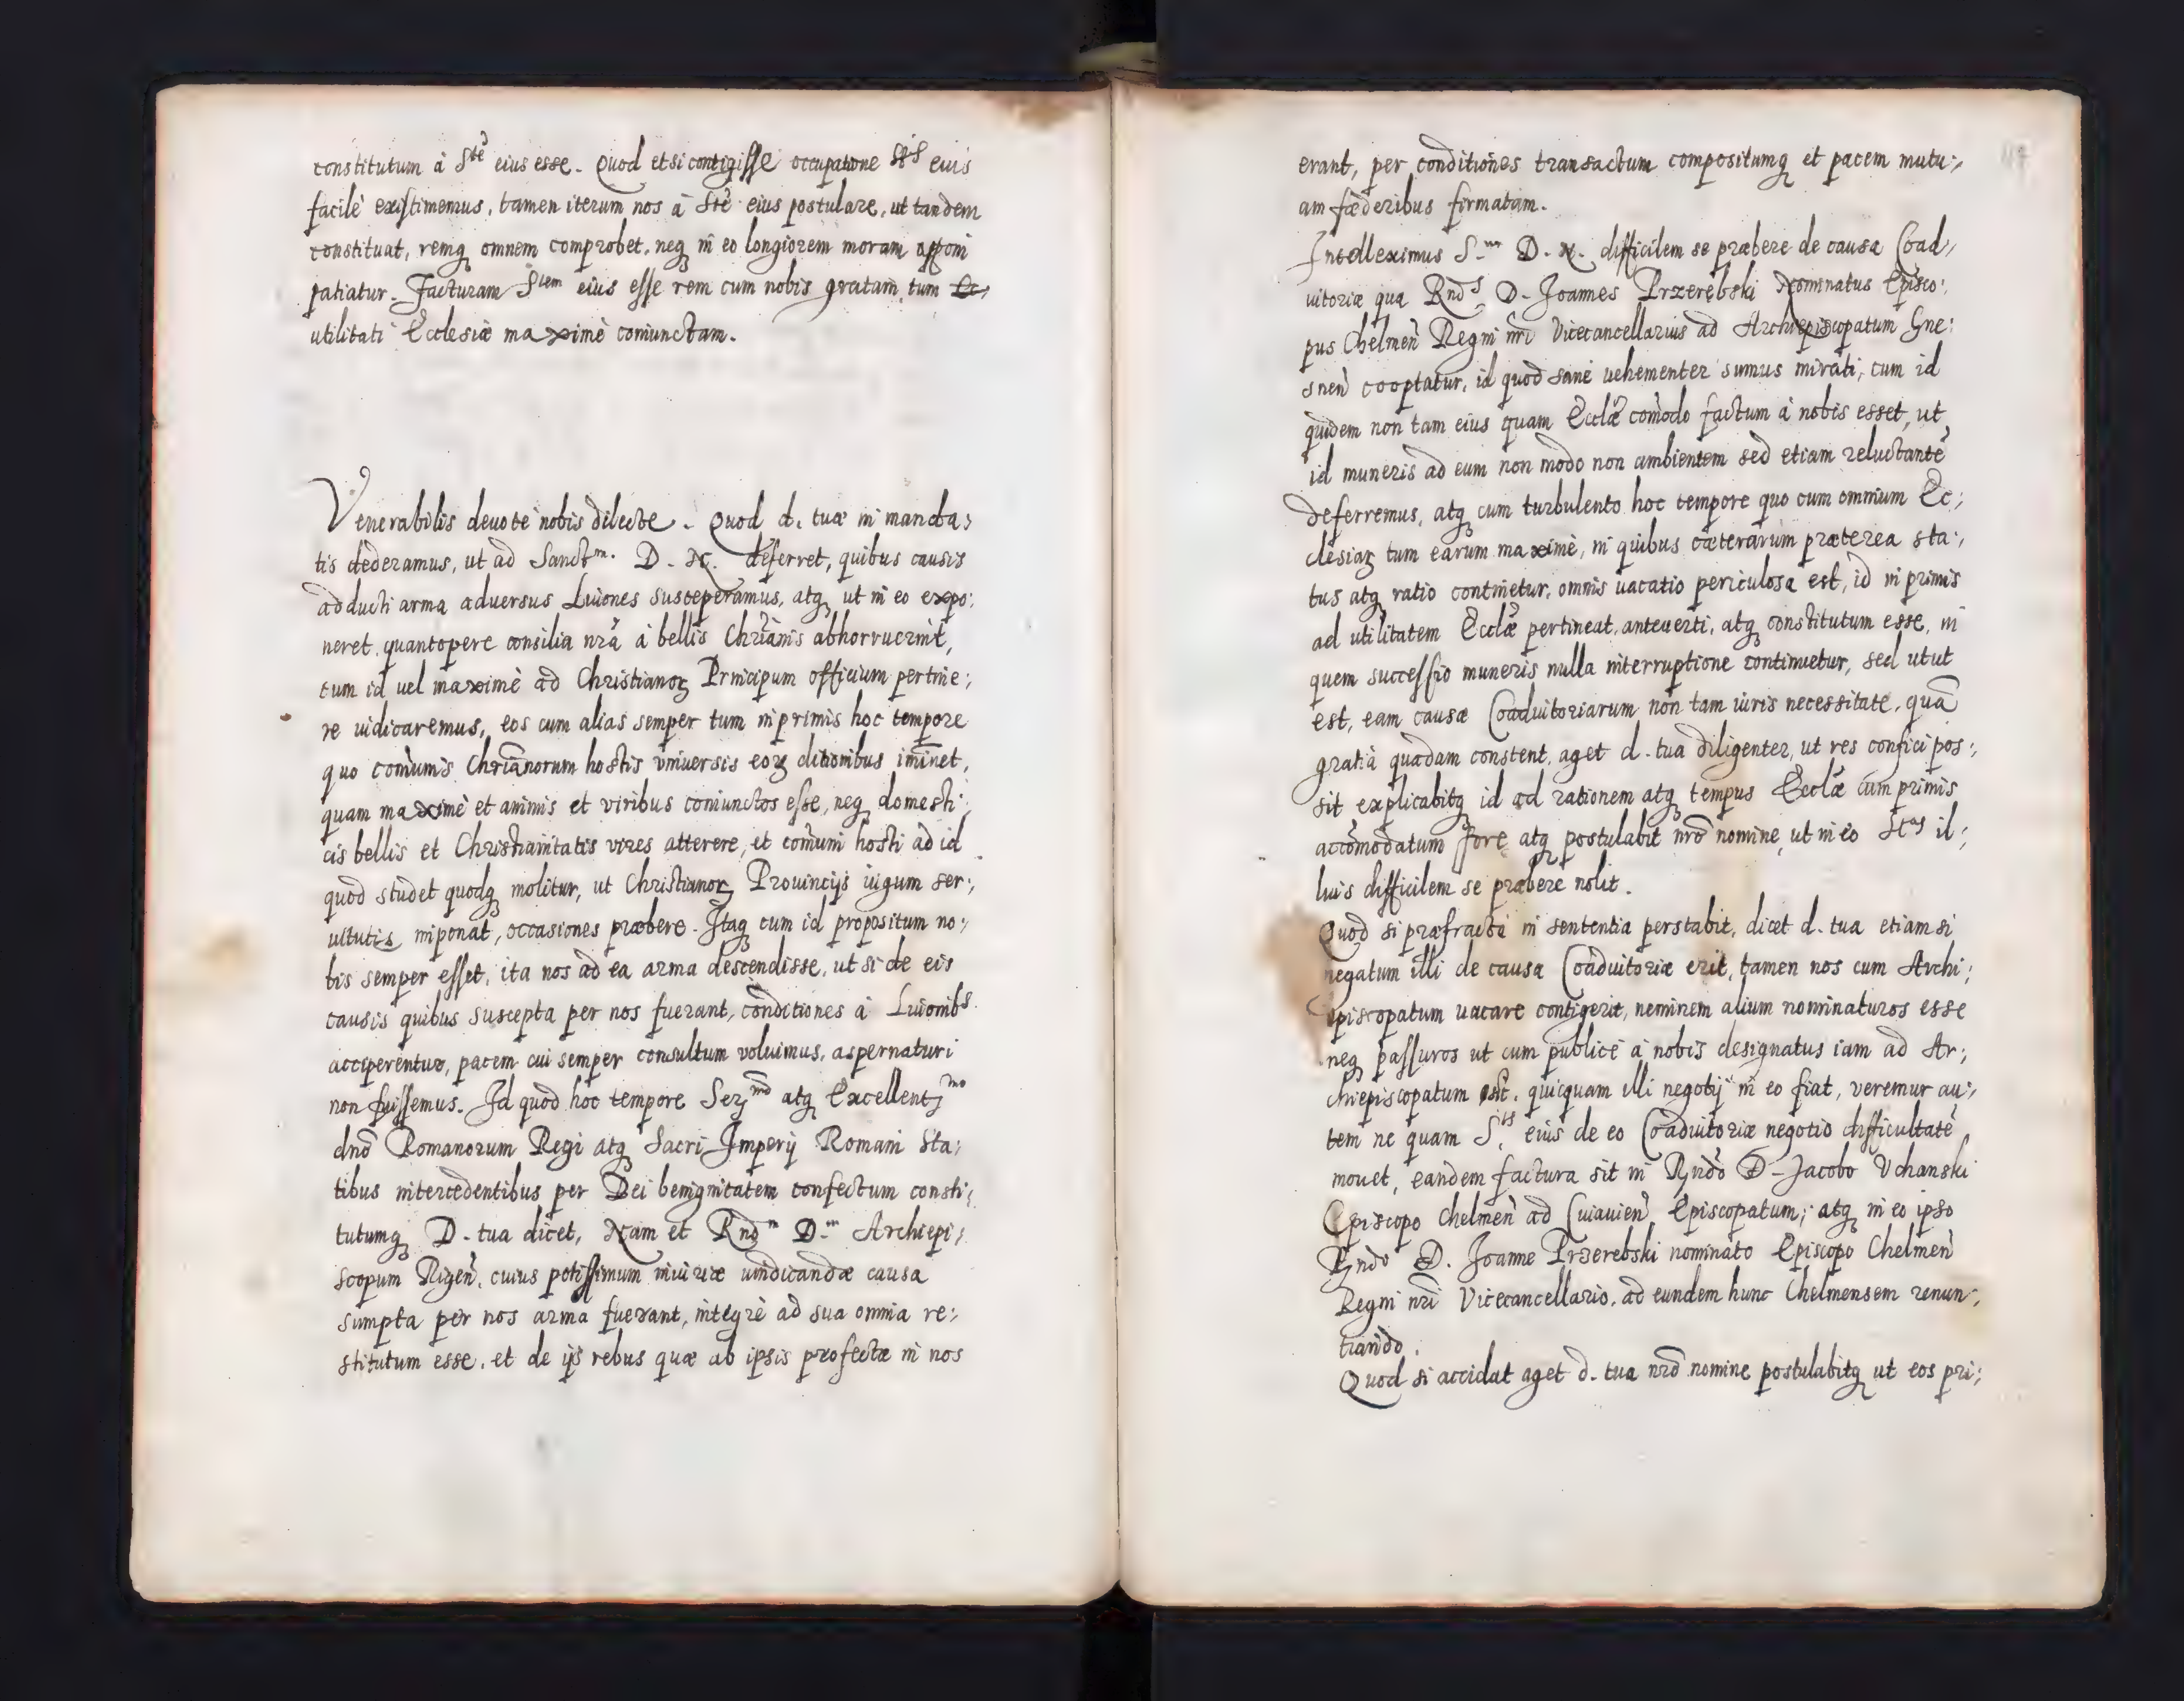 constitutum á Ste eius esse. Quod etsi contigisse occupatione Stis eius
facilè existimemus, tamen iterum nos á Ste eius postulare, ut tandem
constituat, remq omnem comprobet, neq in eo longiorem moram apponi
patiatur. Facturam Stem eius esse rem cum nobis gratam, tum
utilitati Ecclesiæ maximè coniunctam.
Venerabilis deuote nobis dilecte. Quod d. tuæ in manda:
tis dederamus, ut ad Sanctm. D. N. deferret, quibus causis
adducti arma aduersus Liuones susceperamus, atq ut in eo expo:
neret quantopere consilia nrã á bellis Chriãnis abhorruerint,
cum id uel maximè ad Christianoꝝ Principum officium pertine:
re iudicaremus, eos cum alias semper tum inprimis hoc tempore
quo comũnis Chriãnorum hostis vniuersis eoꝝ ditionibus imĩnet,
quam maximè et animis et viribus coniunctos esse, neq domesti:
cis bellis et Christianitatis vires atterere, et comũni hosti ad id
quod studet quodq molitur, ut Christianoꝝ Prouincijs iugum ser:
uitutis imponat, occasiones præbere. Itaq cum id propositum no:
bis semper esset, ita nos ad ea arma descendisse, ut si de eis
causis quibus suscepta per nos fuerant, conditiones á Liuonibs
acciperentur, pacem cui semper consultum voluimus, aspernaturi
non fuissemus. Id quod hoc tempore Serẽmo atq Excellentmo
dnõ Romanorum Regi atq Sacri Imperij Romani Sta:
tibus intercedentibus per Dei benignitatem confectum consti:
tutumq D. tua dicet, Nam et Rndm Dm Archiepi:
scopum Rigeñ. cuius potissimum iniuriæ uindicandæ causa
sumpta per nos arma fuerant, integrè ad sua omnia re:
stitutum esse, et de ijs rebus quæ ab ipsis profectæ in nos
erant, per conditiones transactum compositumq et pacem mutu:
am fœderibus firmatam.
Intelleximus Sm D. N. difficilem se præbere de causa Coad:
iutoriæ qua Rnds D. Joannes Przerębski Nominatus Episco:
pus Chelmeñ Regni nri Vicecancellarius ad Archiepiscopatum Gne:
sneñ cooptatur, id quod sanè uehementer sumus mirati, cum id
quidem non tam eius quam Ecclæ comodo factum á nobis esset, ut
id muneris ad eum non modo non ambientem sed etiam reluctantẽ
deferremus, atq cum turbulento hoc tempore quo cum omnium Ec:
clesiaꝝ tum earum maximè, in quibus cæterarum præterea sta:
tus atq ratio continetur, omnis uacatio periculosa est, id in primis
ad utilitatem Ecclæ pertineat, anteuerti, atq constitutum esse, in
quem successio muneris nulla interruptione continuetur, sed utut
est, eam causæ Coadiutoriarum non tam iuris necessitate, quã
gratia quadam constent, aget d. tua diligenter, ut res confici pos:
sit explicabitq id ad rationem atq tempus Ecclæ cum primis
accõmodatum fore atq postulabit nrõ nomine, ut in eo Stas il:
lius difficilem se præbere nolit.
Quod si præfractè in sententia perstabit, dicet d. tua etiam si
negatum illi de causa Coadiutoriæ erit, tamen nos cum Archi:
episcopatum uacare contigerit, neminem alium nominaturos esse
neq passuros ut cum publicè á nobis designatus iam ad Ar:
chiepiscopatum est, quicquam illi negotij in eo fiat, veremur au:
tem ne quam Stis eius de eo Coadiutoriæ negotio difficultatẽ
mouet, eandem factura sit in Rndo D. Jacobo Vchanski
Episcopo Chelmeñ ad Cuiauieñ Episcopatum; atq in eo ipso
Rndo D. Joanne Przerebski nominato Episcopo Chelmeñ
Regni nri Vicecancellario, ad eundem hunc Chelmensem renun:
tiando.
Quod si accidat aget d. tua nrõ nomine postulabitq ut eos pri: